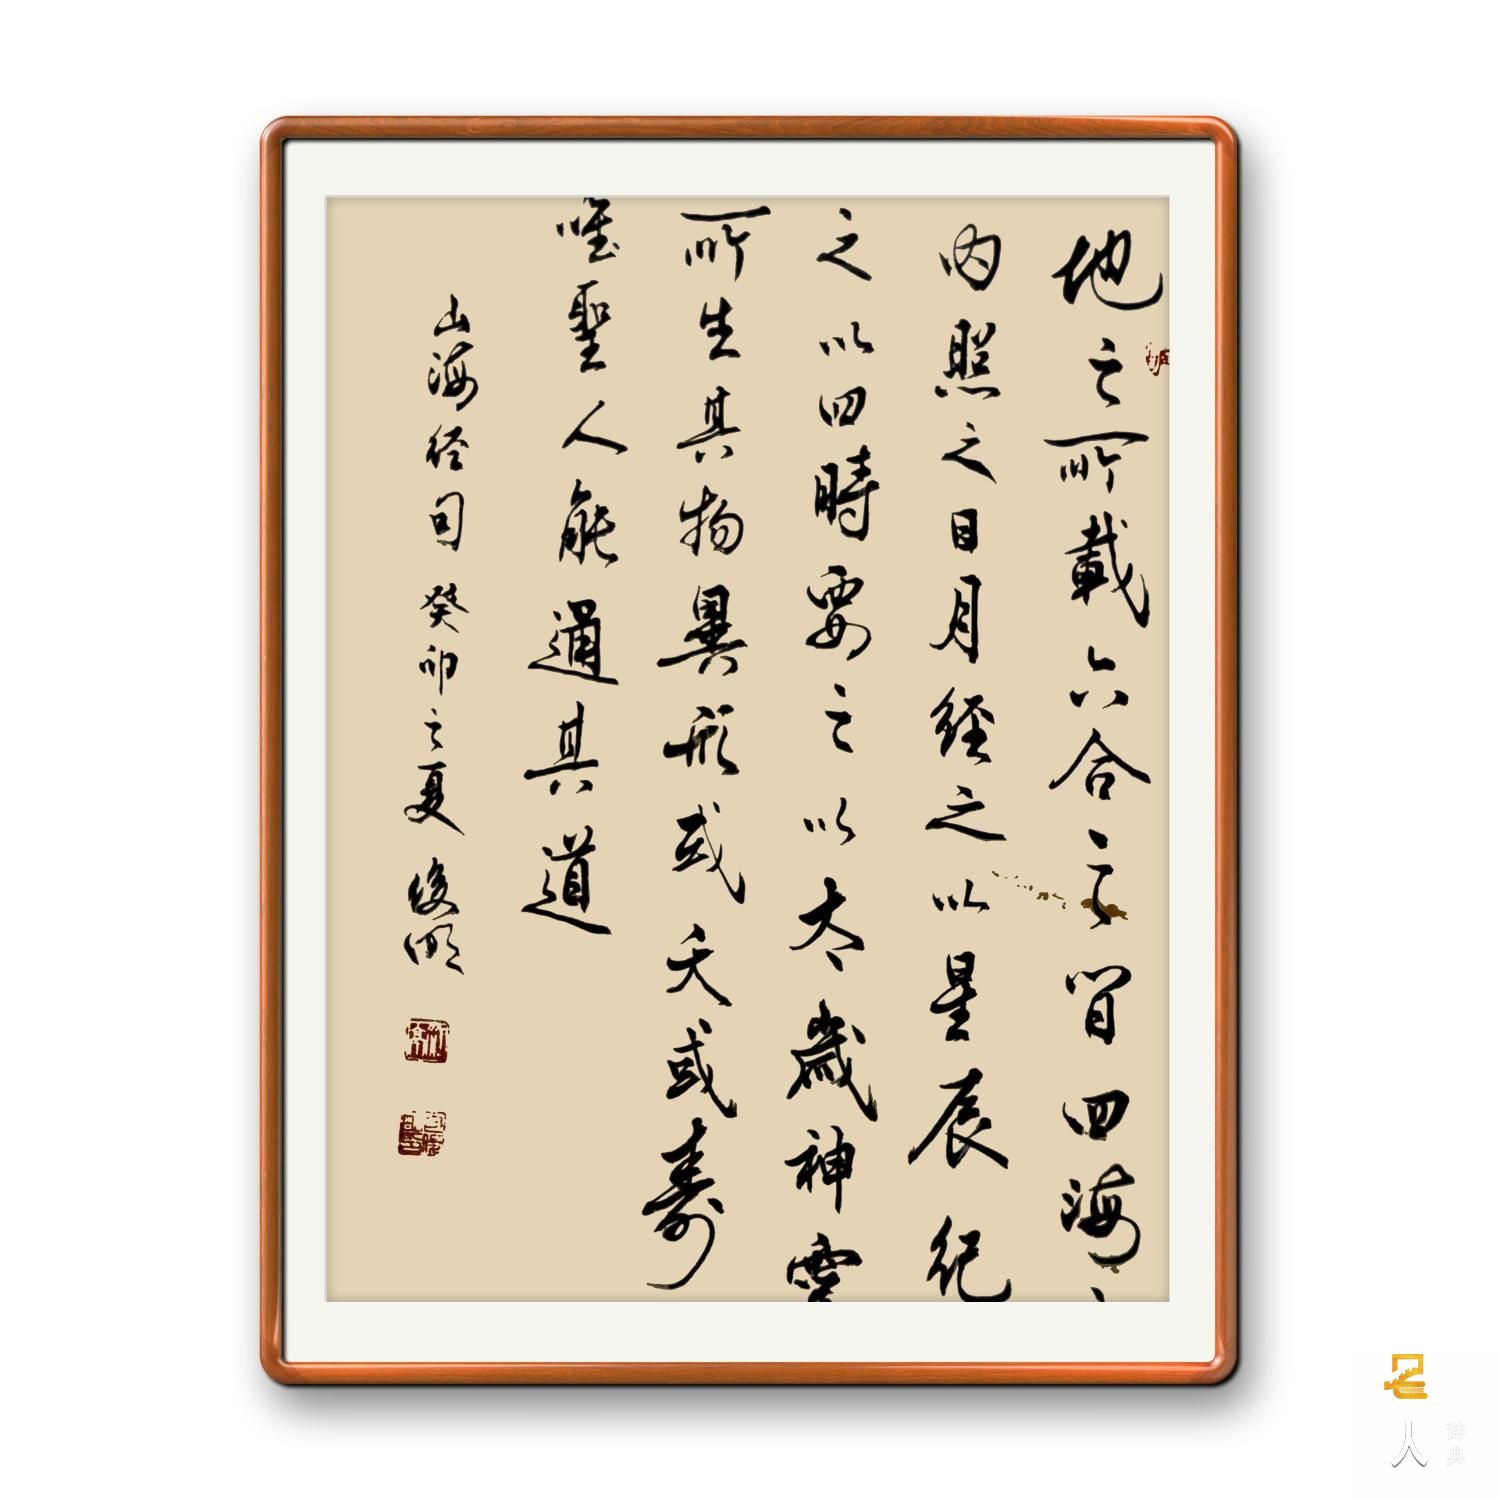 地之所載六合之間四海之
内照之日月经之以星辰紀
之以四時要之以太歲神靈
所生其物異形或夭或壽
唯聖人能通其道
山海经句 癸卯之夏 俊明
名
人
辞典